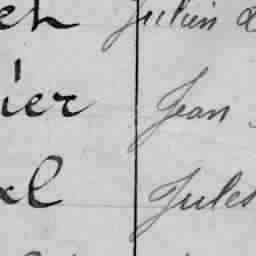 Julien
ier Jean
el Jules